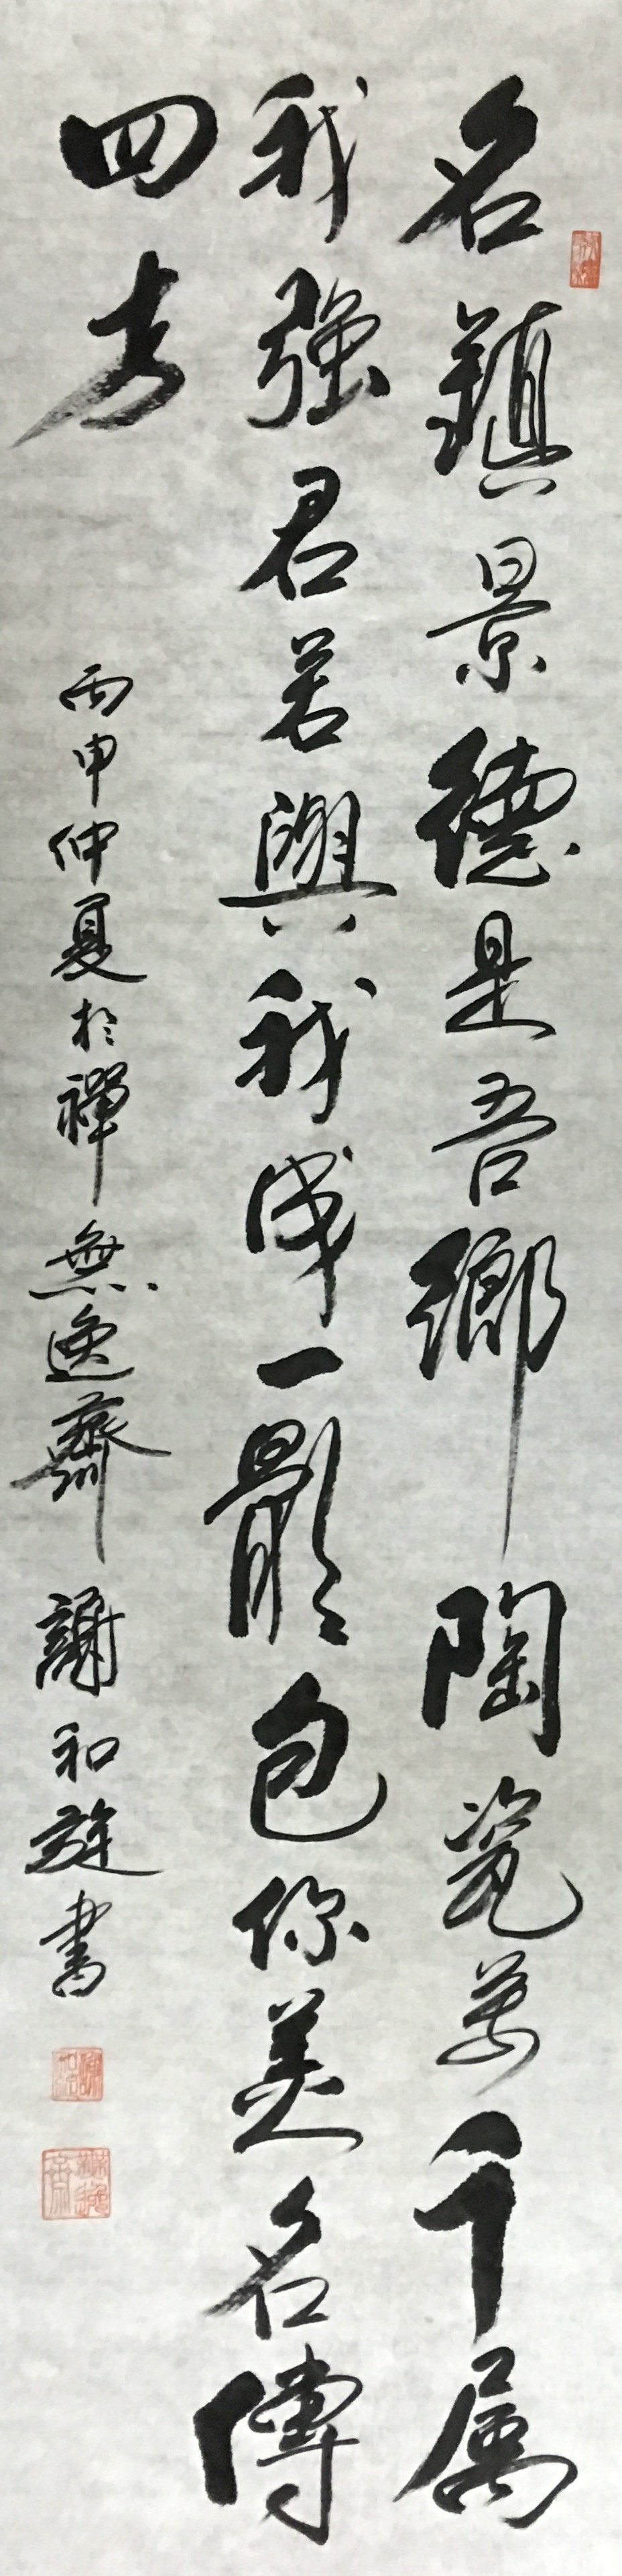 名鎮景德是吾鄉陶瓷萬千属
我強君若與我成一體包你美名傳
四方
丙申仲夏於禪無逸齋謝和旋書